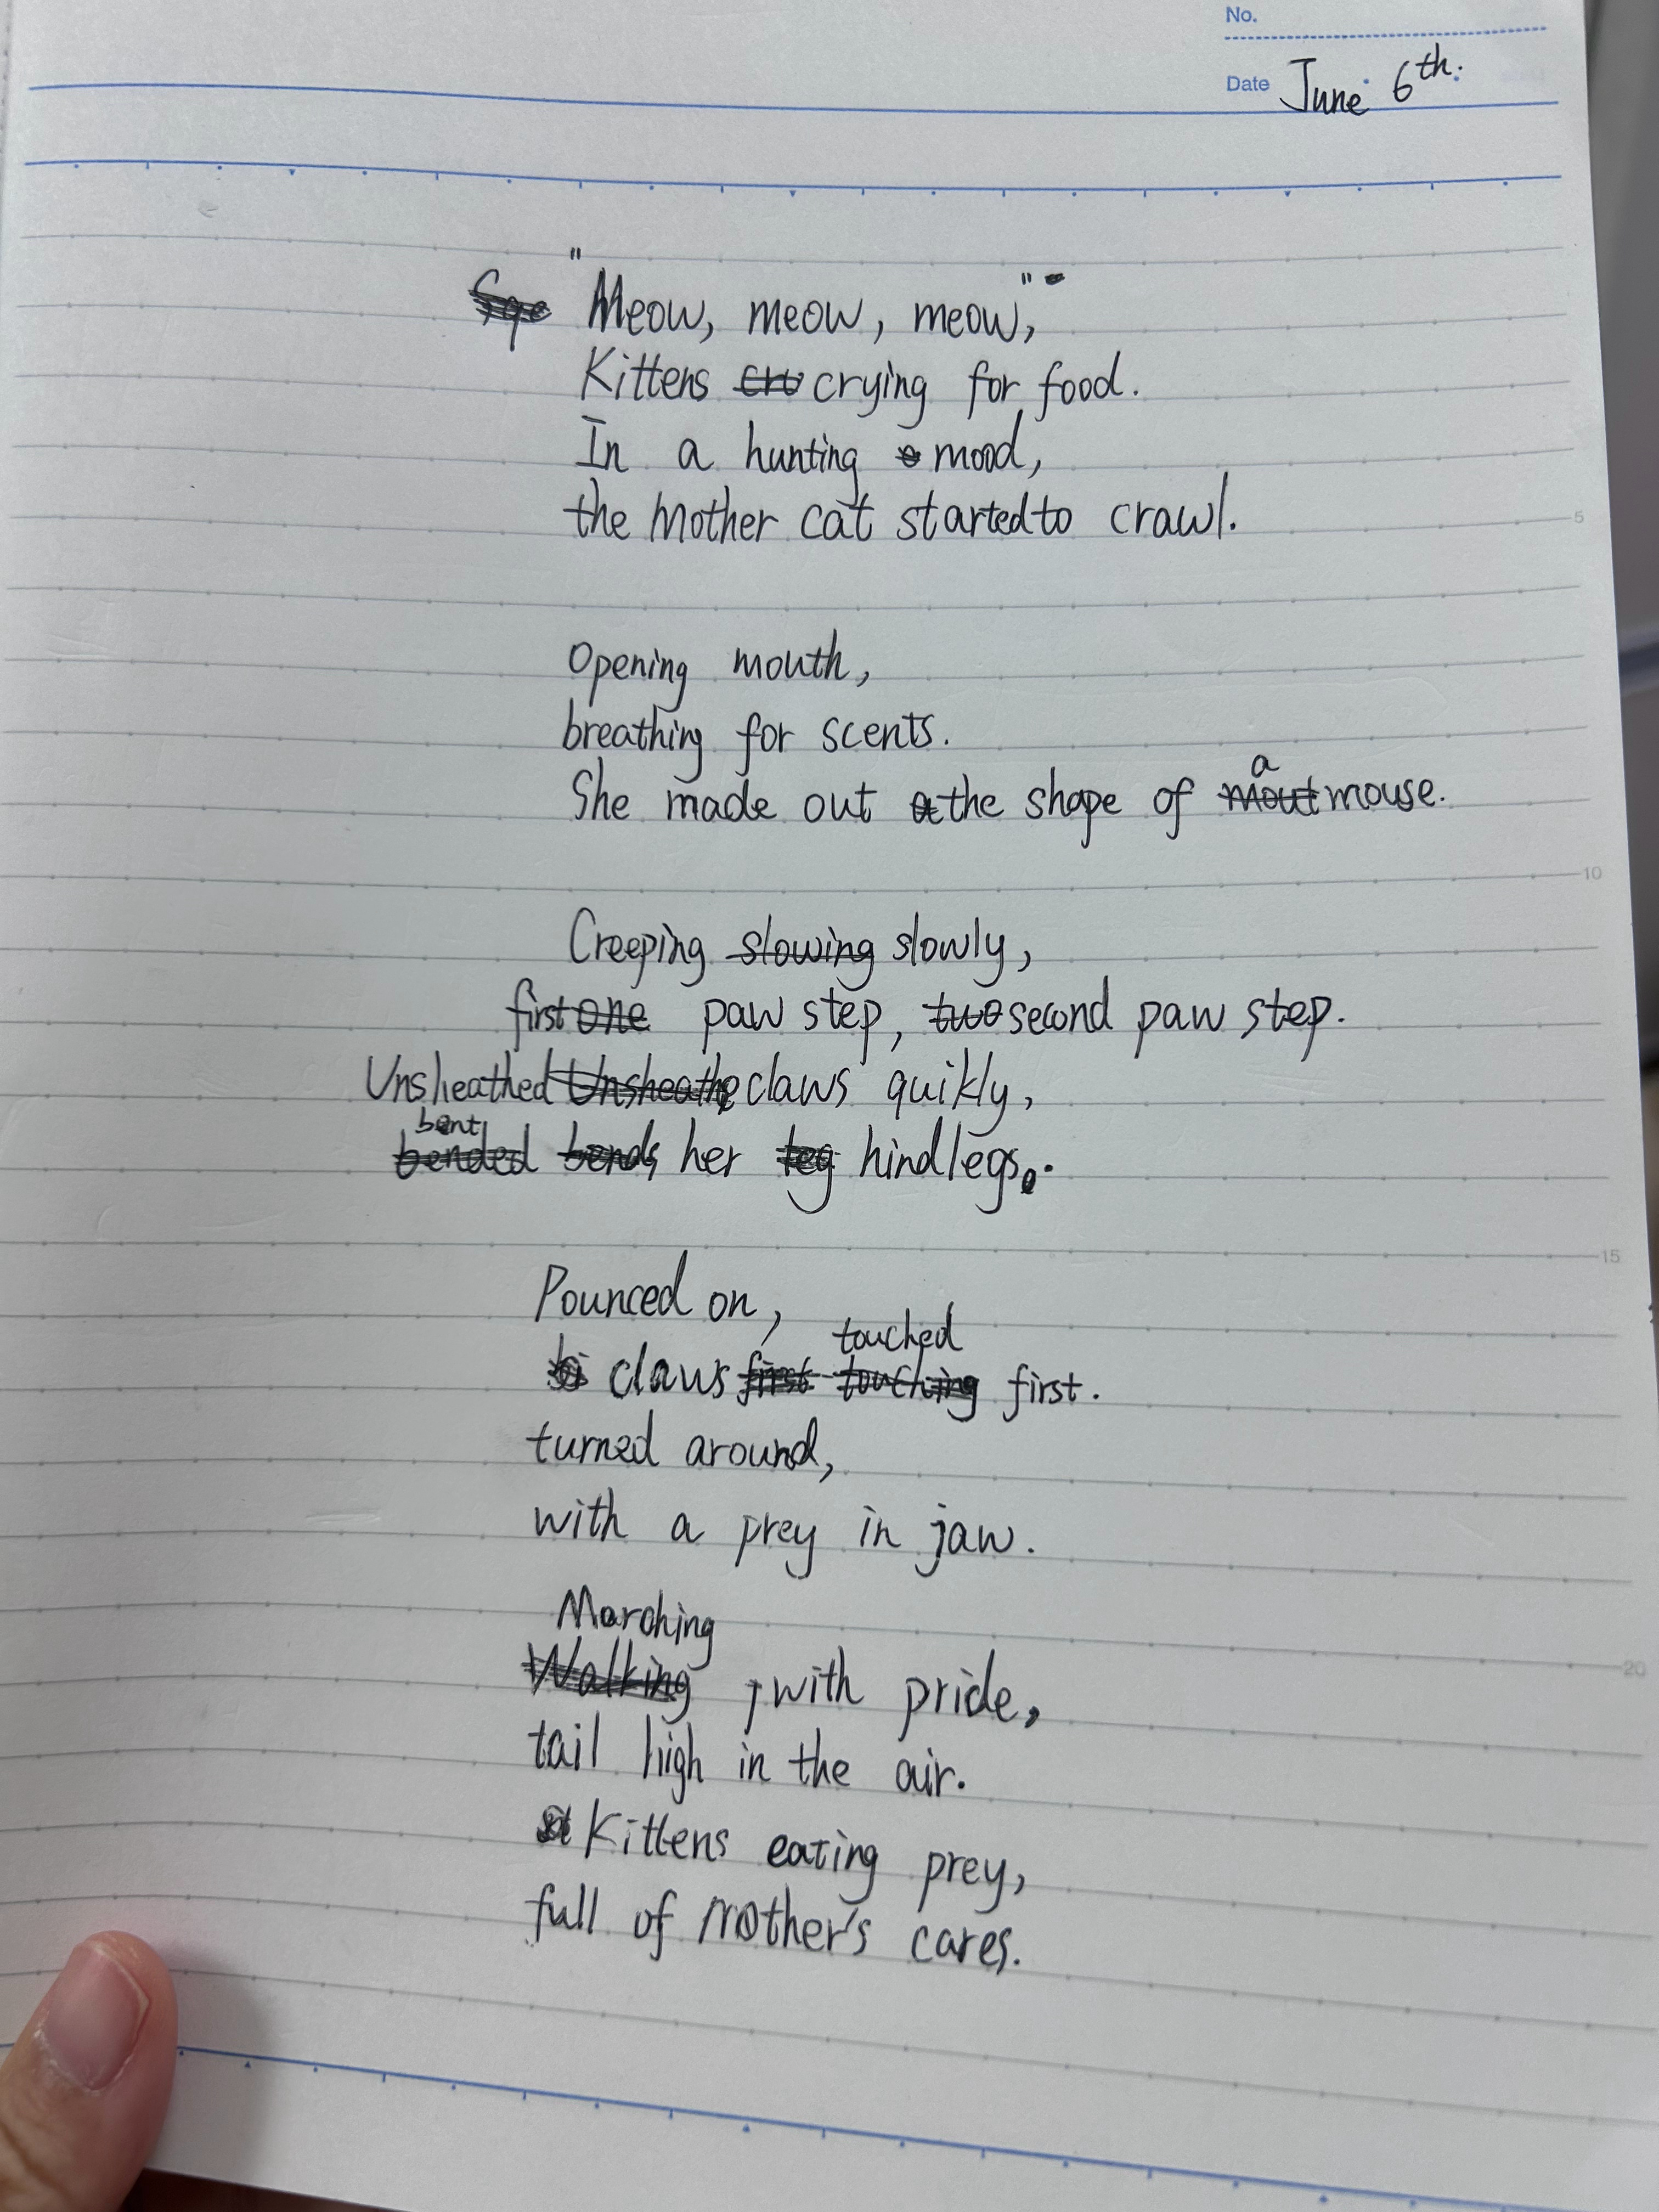 No.
Date June 6th.
"Meow, meow, meow,"
Kittens crying for food.
In a hunting mood,
the mother cat started to crawl.
5
Opening mouth,
breathing for scents.
She made out the shape of a mouse.
10
Creeping slowing slowly,
first one paw step, two second paw step.
Unsheathed Unsheathe claws quikly,
bent
bended bends her leg hind legs.
15
Pounced on,
touched
claws first touching first.
turned around,
with a prey in jaw.
Marching
Walking, with pride,
20
tail high in the air.
Kittens eating prey,
full of mother's cares.